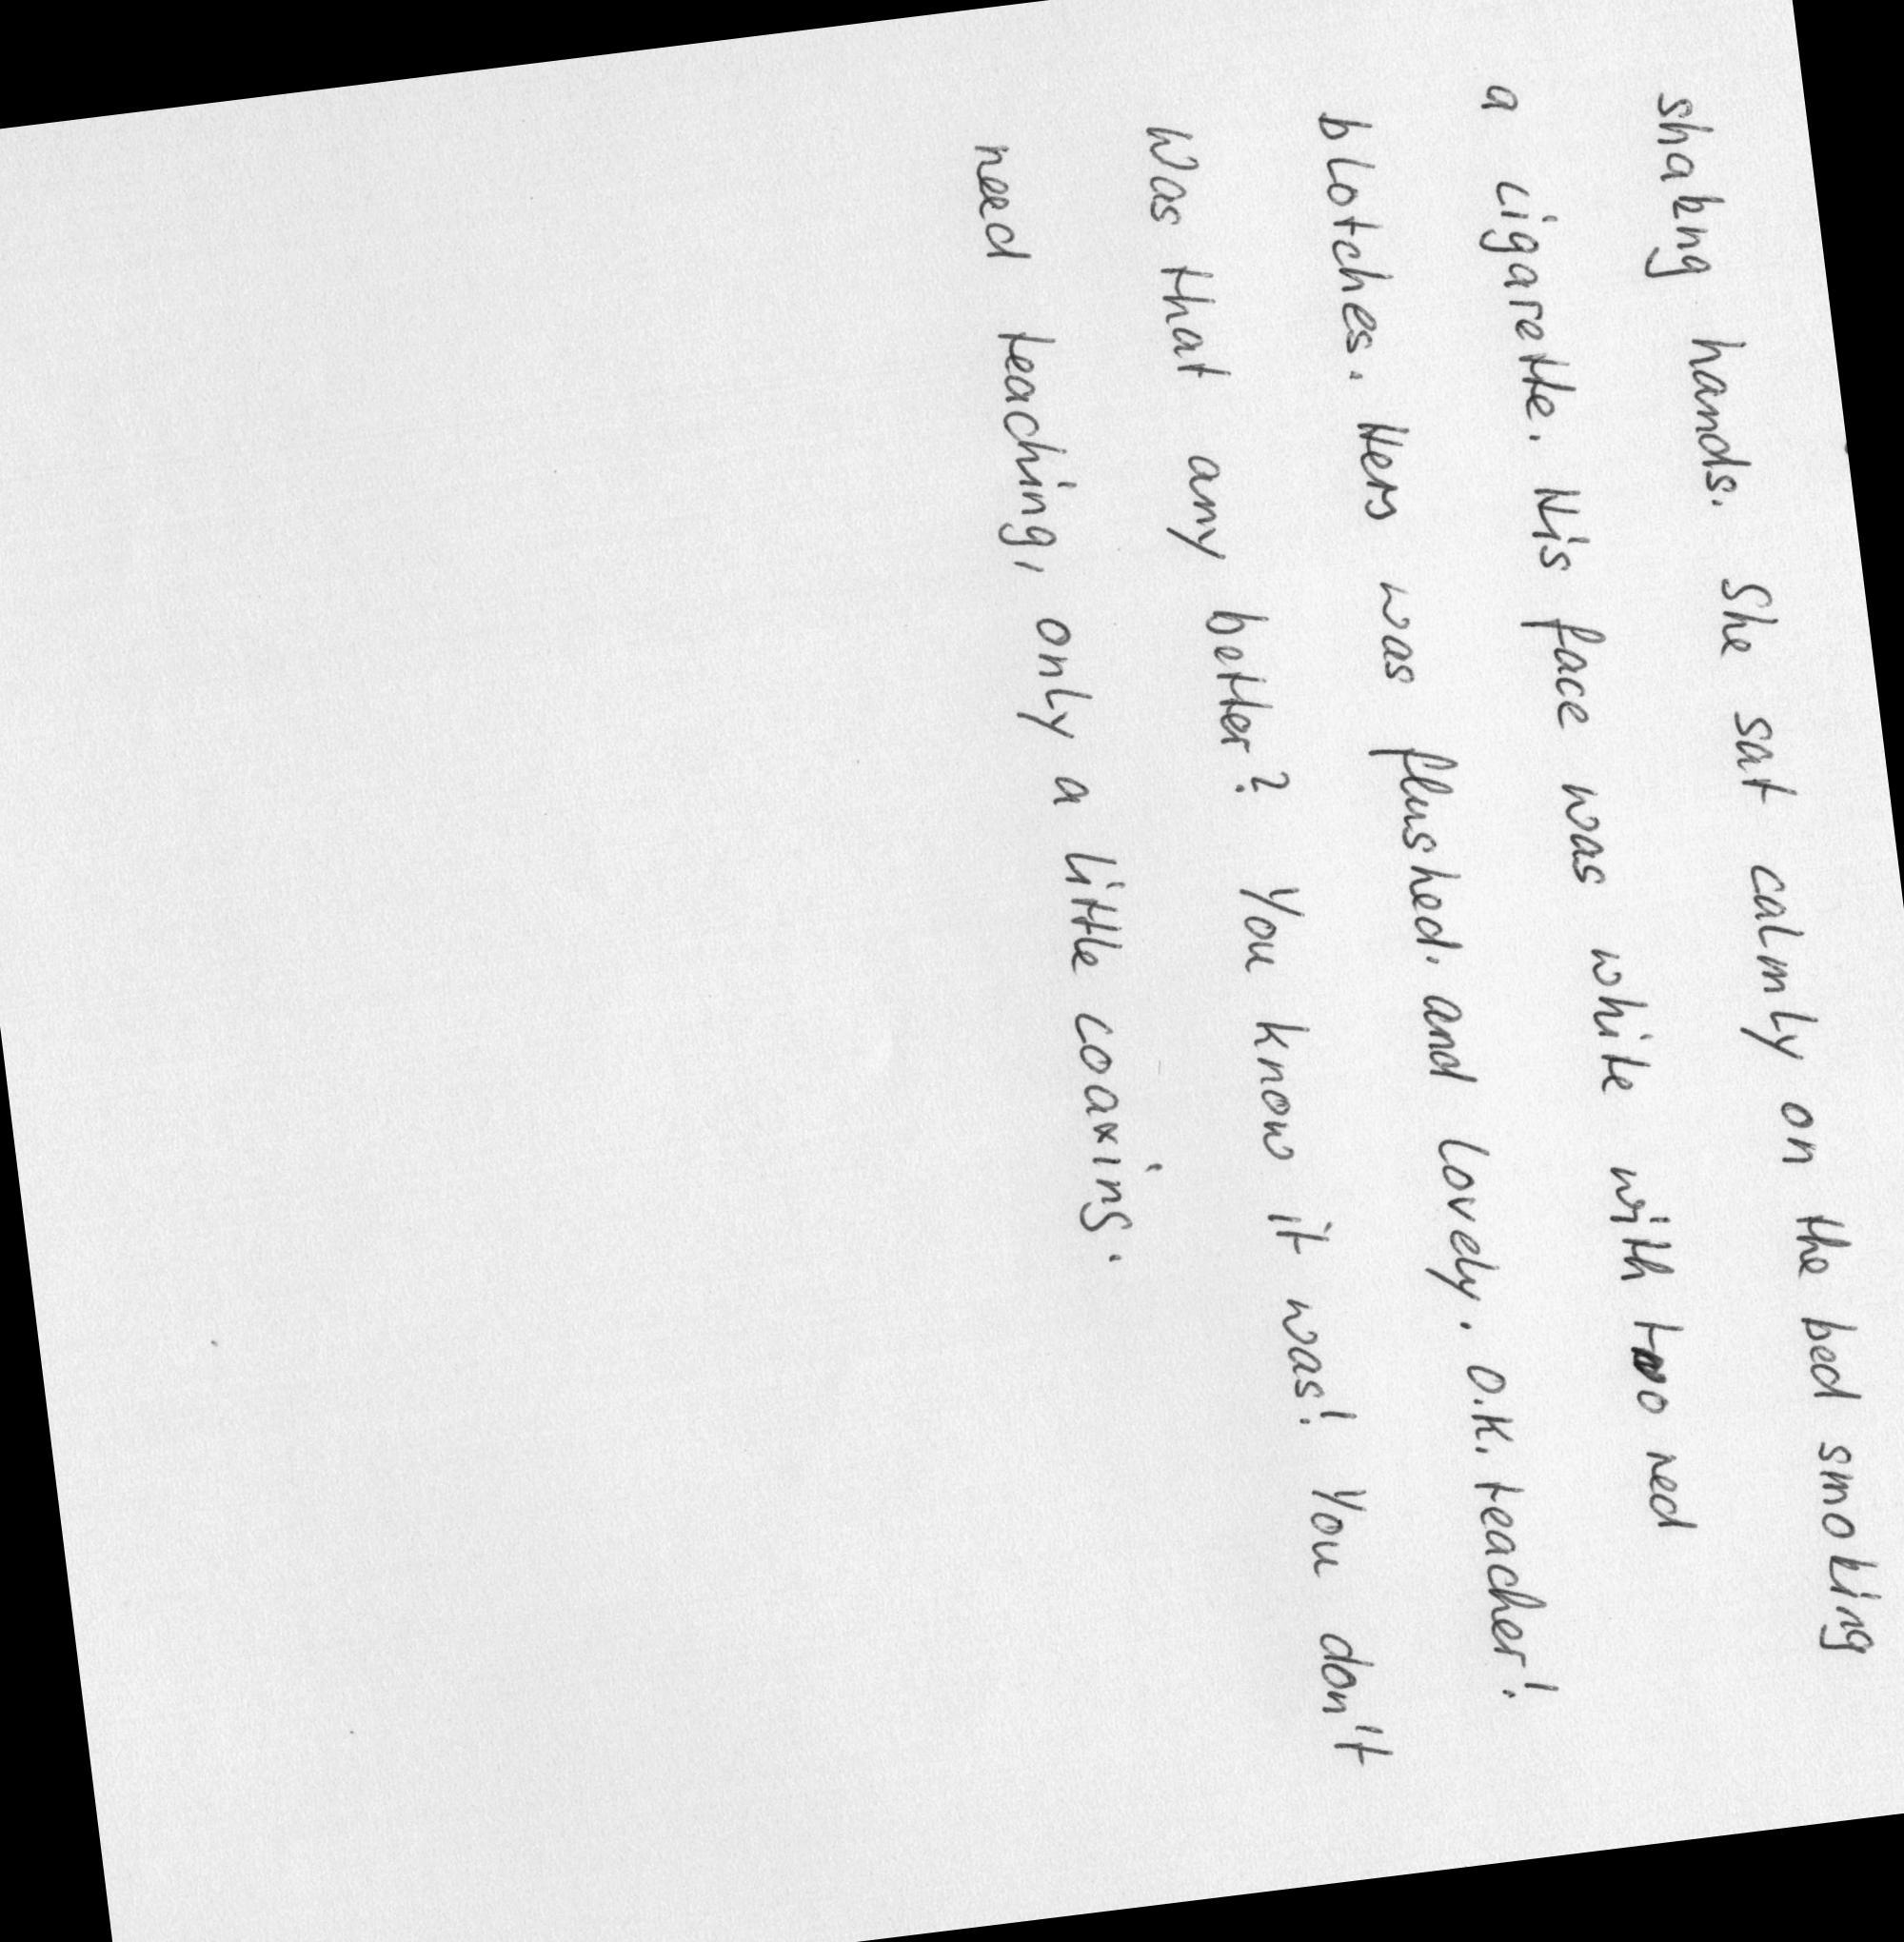 shaking hands. She sat calmly on the bed smoking
a cigarette. His face was white with two red
blotches. Hers was flushed. and lovely. O.K. teacher!
Was that any better? You know it was! You don't
need teaching, only a little coaxing.